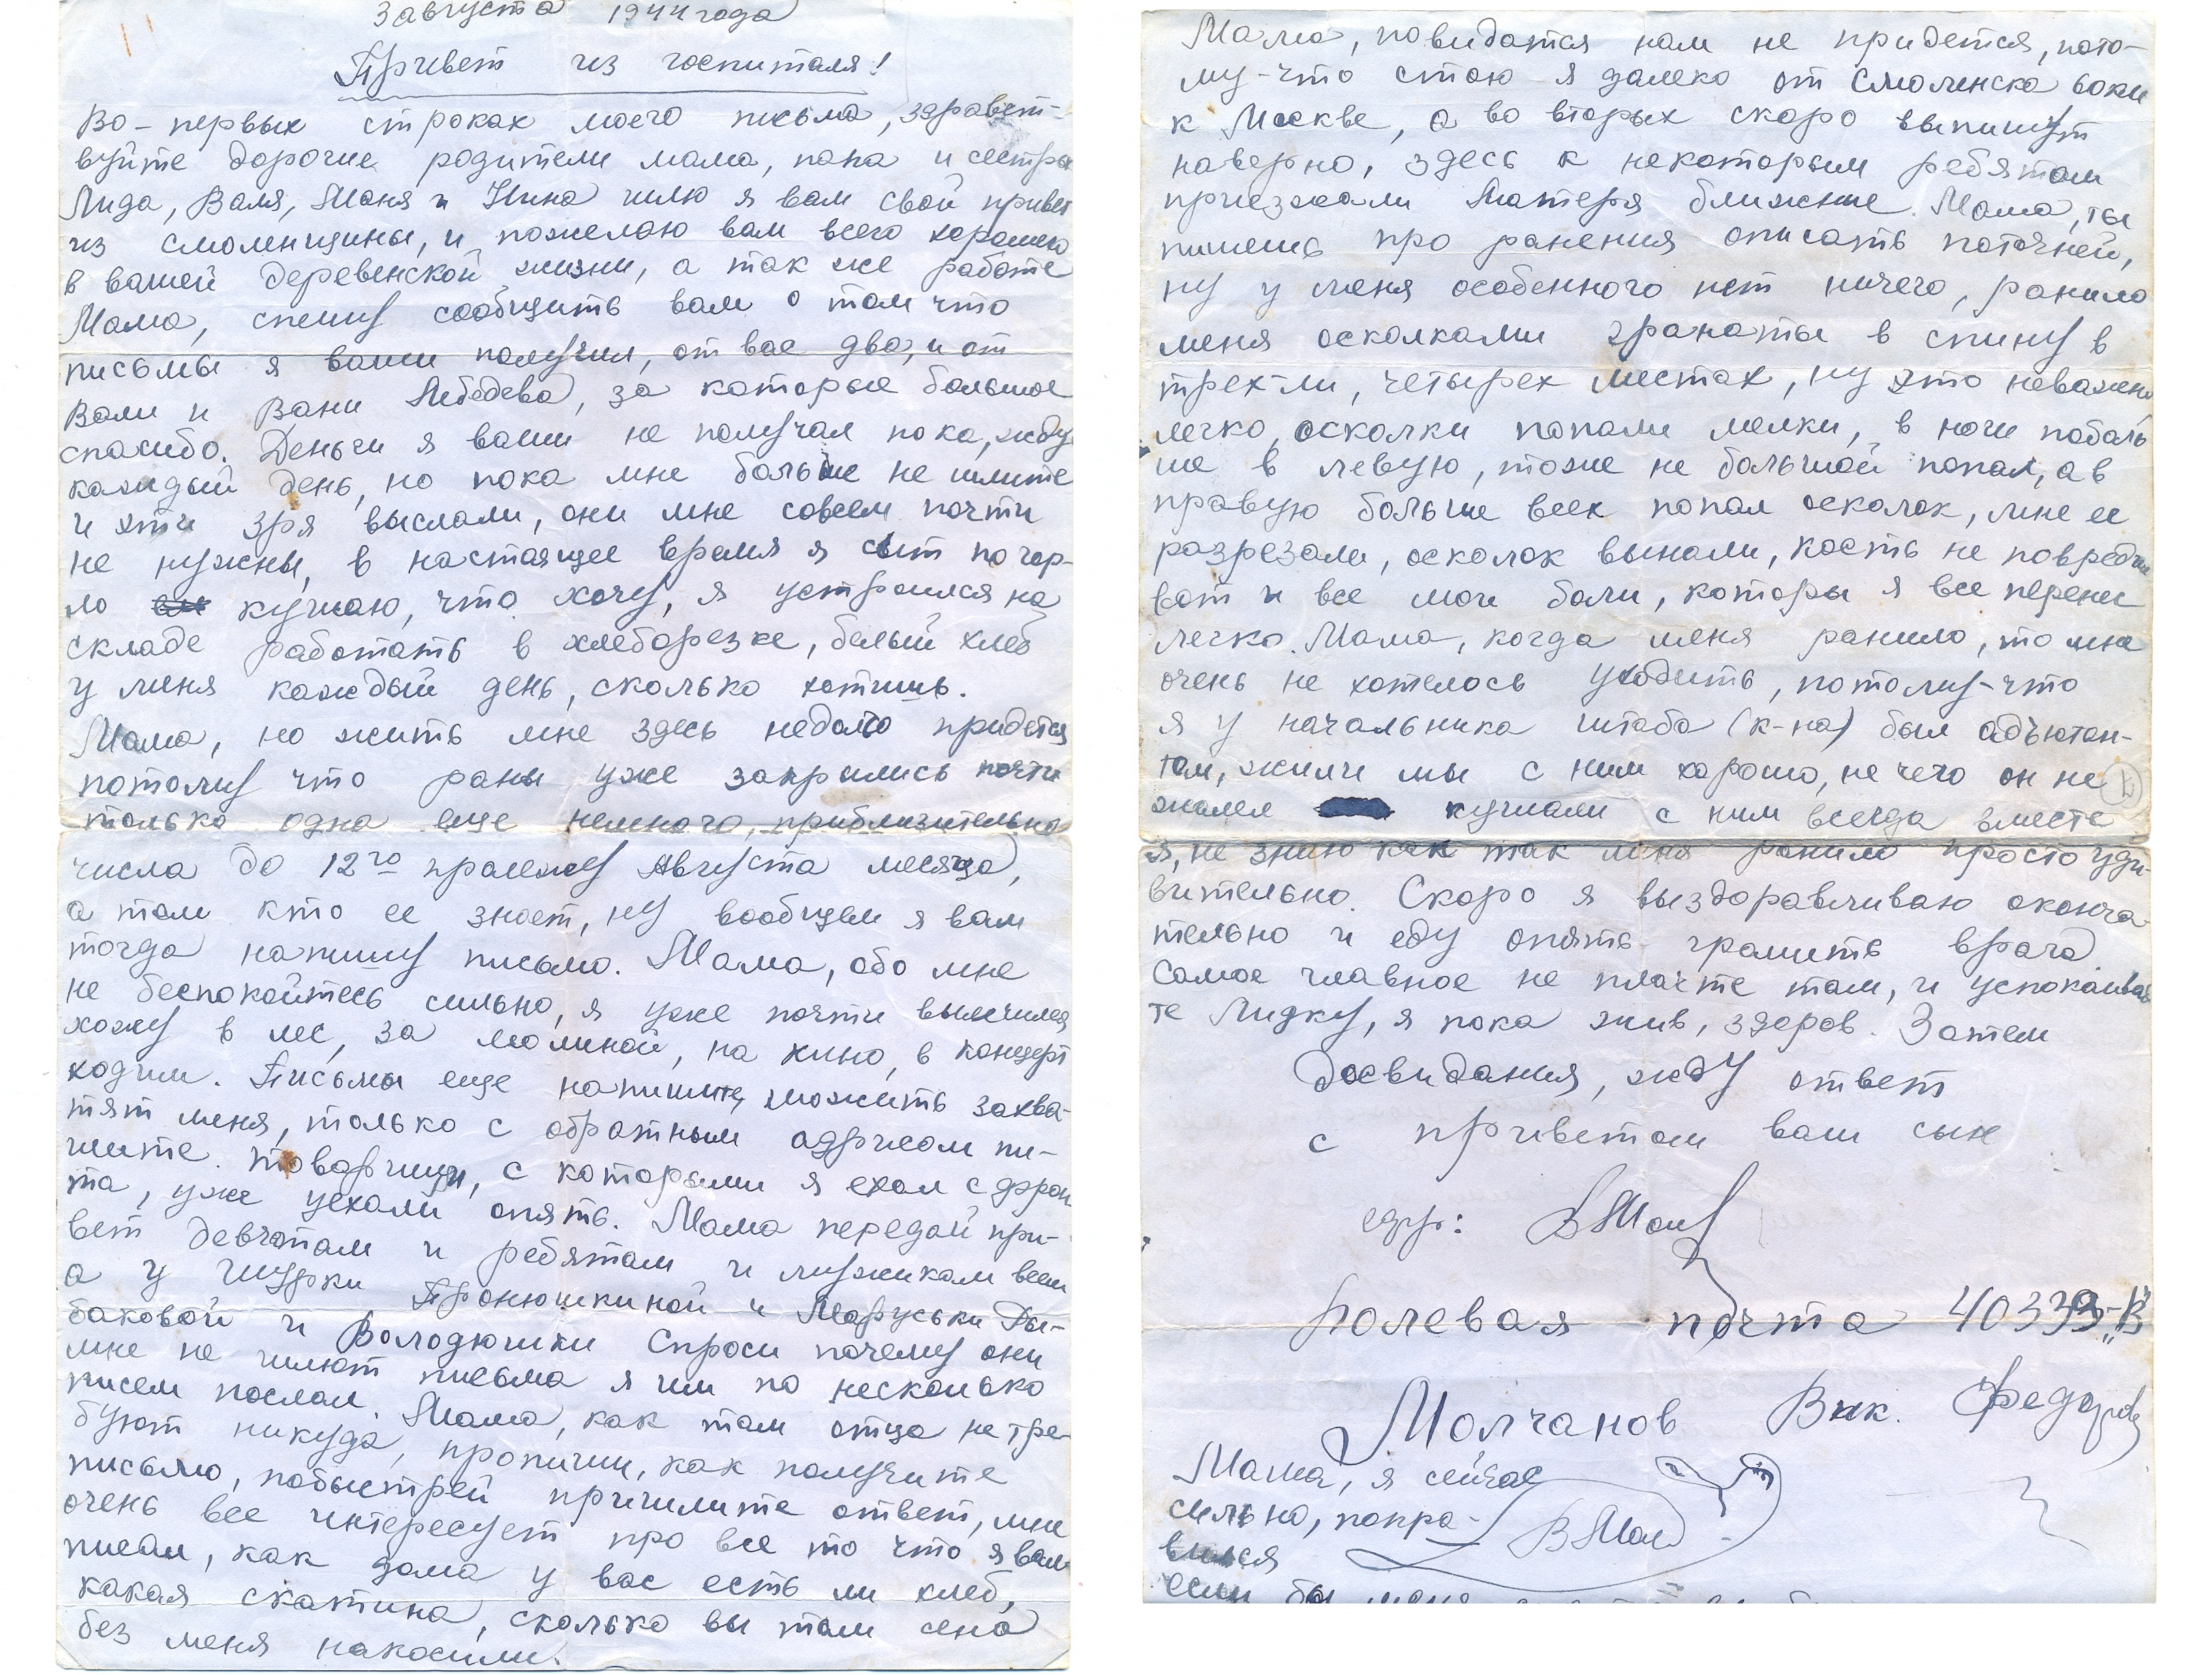 3 августа 1944 года
Привет из госпиталя!
Во-первых строках моего письма, здравст-
вуйте дорогие родители мама, папа и сестры
Лида, Валя, Маня и Нина шлю я вам свой привет
из смоленщины, и пожелаю вам всего хорошего
в вашей деревенской жизни, а так же работе
Мама, спешу сообщить вам о том что
письмы я ваши получил, от вас два, и от
Вали и Вани Лебедева, за которые большое
спасибо. Деньги я ваши не получал пока, жду
каждый день, но пока мне больше не шлите
и эти зря выслали, они мне совсем почти
не нужны, в настоящее время я сыт по гор-
ло кушаю, что хочу, я устроился на
складе работать в хлеборезке, белый хлеб
у меня каждый день, сколько хотишь.
Мама, но жить мне здесь недолго придется
потому что раны уже закрылись почти
только одна еще немного, приблизительно
числа до 12го пролежу Августа месяца,
а там кто ее знает, ну вообщем я вам
тогда напишу письмо. Мама, обо мне
не беспокойтесь сильно, я уже почти вылечился
хожу в лес, за малиной, на кино, в концерт
ходим. Письмы еще напишите, можить захва-
тят меня, только с обратным адресом пи-
шите. Товарищи, с которыми я ехал с фрон
та, уже уехали опять. Мама передай при-
вет девчатам и ребятам и мужикам всем
а у Шурки Пронюшкиной и Маруськи Ры-
баковой и Володюшки Спроси почему они
мне не шлют письма я им по несколько
писем послал. Мама, как там отца не тре-
буют никуда, пропиши, как получите
письмо, побыстрей пришлите ответ, мне
очень все интересует про все то что я вам
писал, как дома у вас есть ли хлеб,
какая скатина, сколько вы там сена
без меня накосили.
Мама, повидатся нам не придется, пото-
му-что стою я далеко от Смоленска боки
к Москве, а во вторых скоро выпишут
наверно, здесь к некоторым ребятам
приезжали Матеря ближние. Мама, ты
пишешь про ранения описать поточней,
ну у меня особенного нет ничего, ранило
меня осколками гранаты в спину в
трех-ли, четырех местах, ну это неважно
легко, осколки попали мелки, в ноги поболь
ше в левую, тоже не большой попал, а в
правую больше всех попал осколок, мне ее
разрезали, осколок вынали, кость не повредил
вот и все мои боли, которы я все перенес
легко. Мама, когда меня ранило, то мне
очень не хотелось уходить, потому-что
я у начальника штаба (к-на) был адъютан-
том, жили мы с ним хорошо, не чего он не
жалел кушали с ним всегда вместе
я, не знаю как так меня ранило просто уди-
вительно. Скоро я выздоравливаю оконча
тельно и еду опять громить врага
Самое главное не плачте там, и успокаивай
те Лидку, я пока жив, здоров. Затем
досвидания, жду ответ
с приветом ваш сын
Полевая почта 40339-"В"
Молчанов Вик. Федоров
Мама, я сейчас
сильно, попра-
вился
ВМол
если бы меня